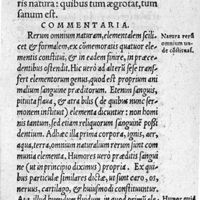 ris natura: quibus tum ægrotat, tum
sanum est.
COMMENTARIA.
Rerum omnium naturam, elementalem scili
cet & formalem, ex cōmemoratis quatuor elemen
tis constitui, & in eadem finire, in præce-
dentibus ostendit. Hic verò ad alterū sese transfert
elementorum genus, quod est proprium ani
malium sanguine præditorum. Etenim sanguis,
pituita flaua, & atra bilis (de quibus nunc ser
monem instituit) elementa dicuntur, non homi
nis tantùm, sed etiam reliquorum sanguine possi
dentium. Adhæc illa prima corpora, ignis, aer,
aqua, terra, omnium naturalium rerum sunt com
munia elementa. Humores verò præditis sangui
ne (ut in principio diximus) propria. Ex qui-
bus particulæ similares dictæ, ut sunt caro, os,
neruus, cartilago, & huiusmodi constituuntur.
Natura rerū
omnium un-
de cōstituat.
Humor quid